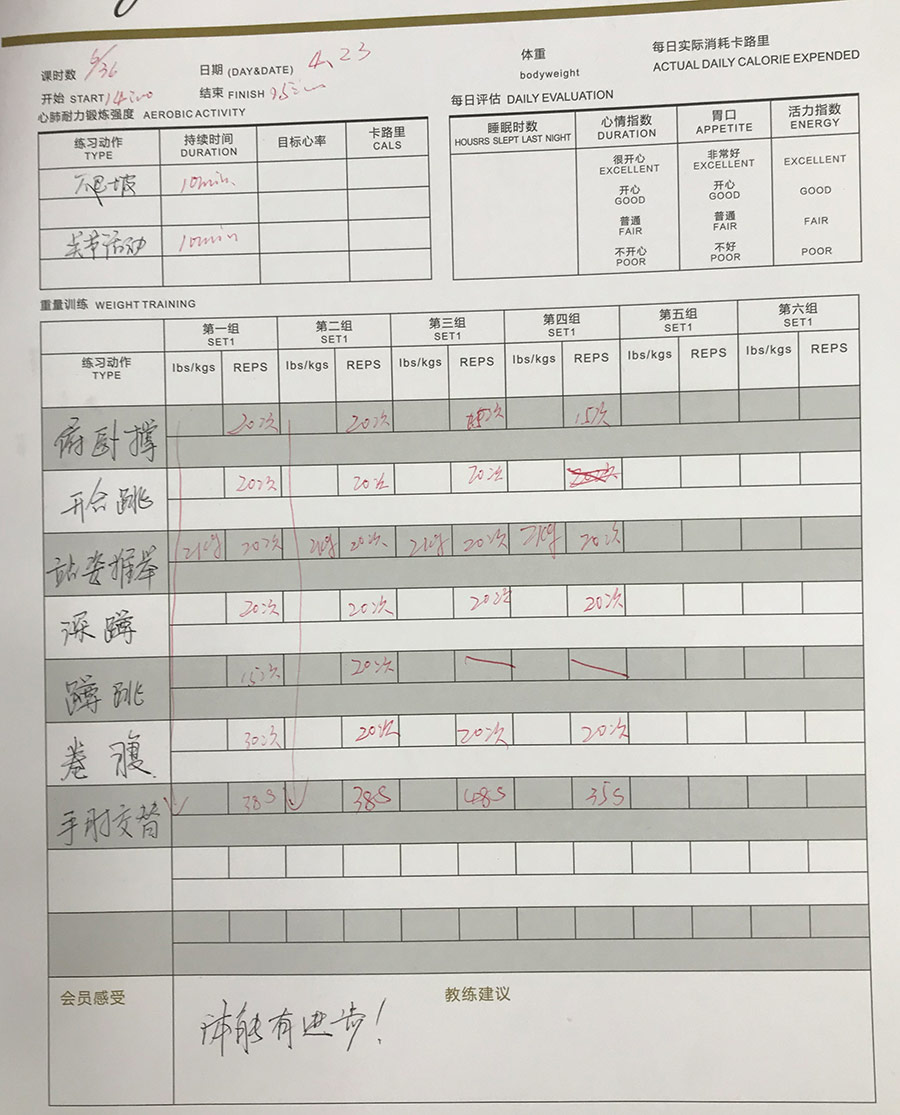 课时数 6/36 日期 (DAY&DATE) 4、23 体重 bodyweight 每日实际消耗卡路里 ACTUAL DAILY CALORIE EXPENDED
开始 START 结束 FINISH 每日评估 DAILY EVALUATION
心肺耐力锻炼强度 AEROBIC ACTIVITY
练习动作 TYPE 持续时间 DURATION 目标心率 卡路里 CALS
10min.
关节活动 10min
睡眠时数 HOUSRS SLEPT LAST NIGHT 心情指数 DURATION 胃口 APPETITE 活力指数 ENERGY
很开心 EXCELLENT 非常好 EXCELLENT EXCELLENT
开心 GOOD 开心 GOOD GOOD
普通 FAIR 普通 FAIR FAIR
不开心 POOR 不好 POOR POOR
重量训练 WEIGHT TRAINING
第一组 SET1 第二组 SET1 第三组 SET1 第四组 SET1 第五组 SET1 第六组 SET1
练习动作 TYPE lbs/kgs REPS lbs/kgs REPS lbs/kgs REPS lbs/kgs REPS lbs/kgs REPS lbs/kgs REPS
俯卧撑 20次 20次 15次
开合跳 20次 20次 20次
站姿推举 2kg 20次 2kg 20次 2kg 20次 2kg 20次
深蹲 20次 20次 20次 20次
蹲跳 15次 20次
卷腹 30次 20次 20次 20次
手肘交替 38S 38S 48S 35S
会员感受 教练建议
体能有进步!